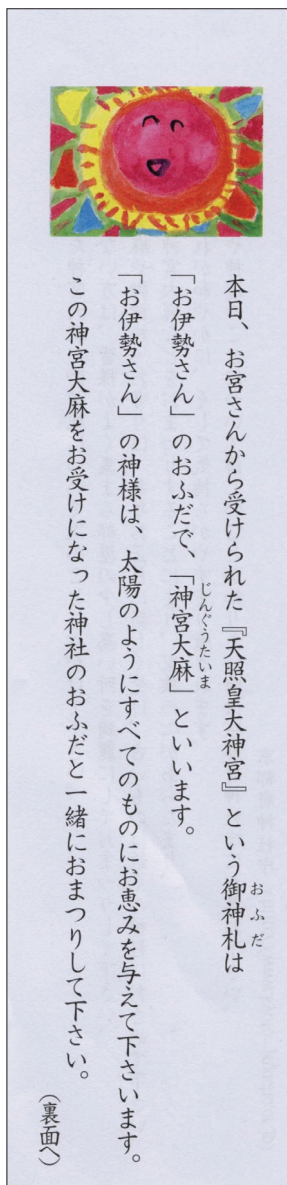 本日、お宮さんから受けられた『天照皇大神宮』という御神札は
おふだ
「お伊勢さん」のおふだで、「神宮大麻」といいます。
じんぐうたいま
「お伊勢さん」の神様は、太陽のようにすべてのものにお恵みを与えて下さいます。
この神宮大麻をお受けになった神社のおふだと一緒におまつりして下さい。
(裏面へ)